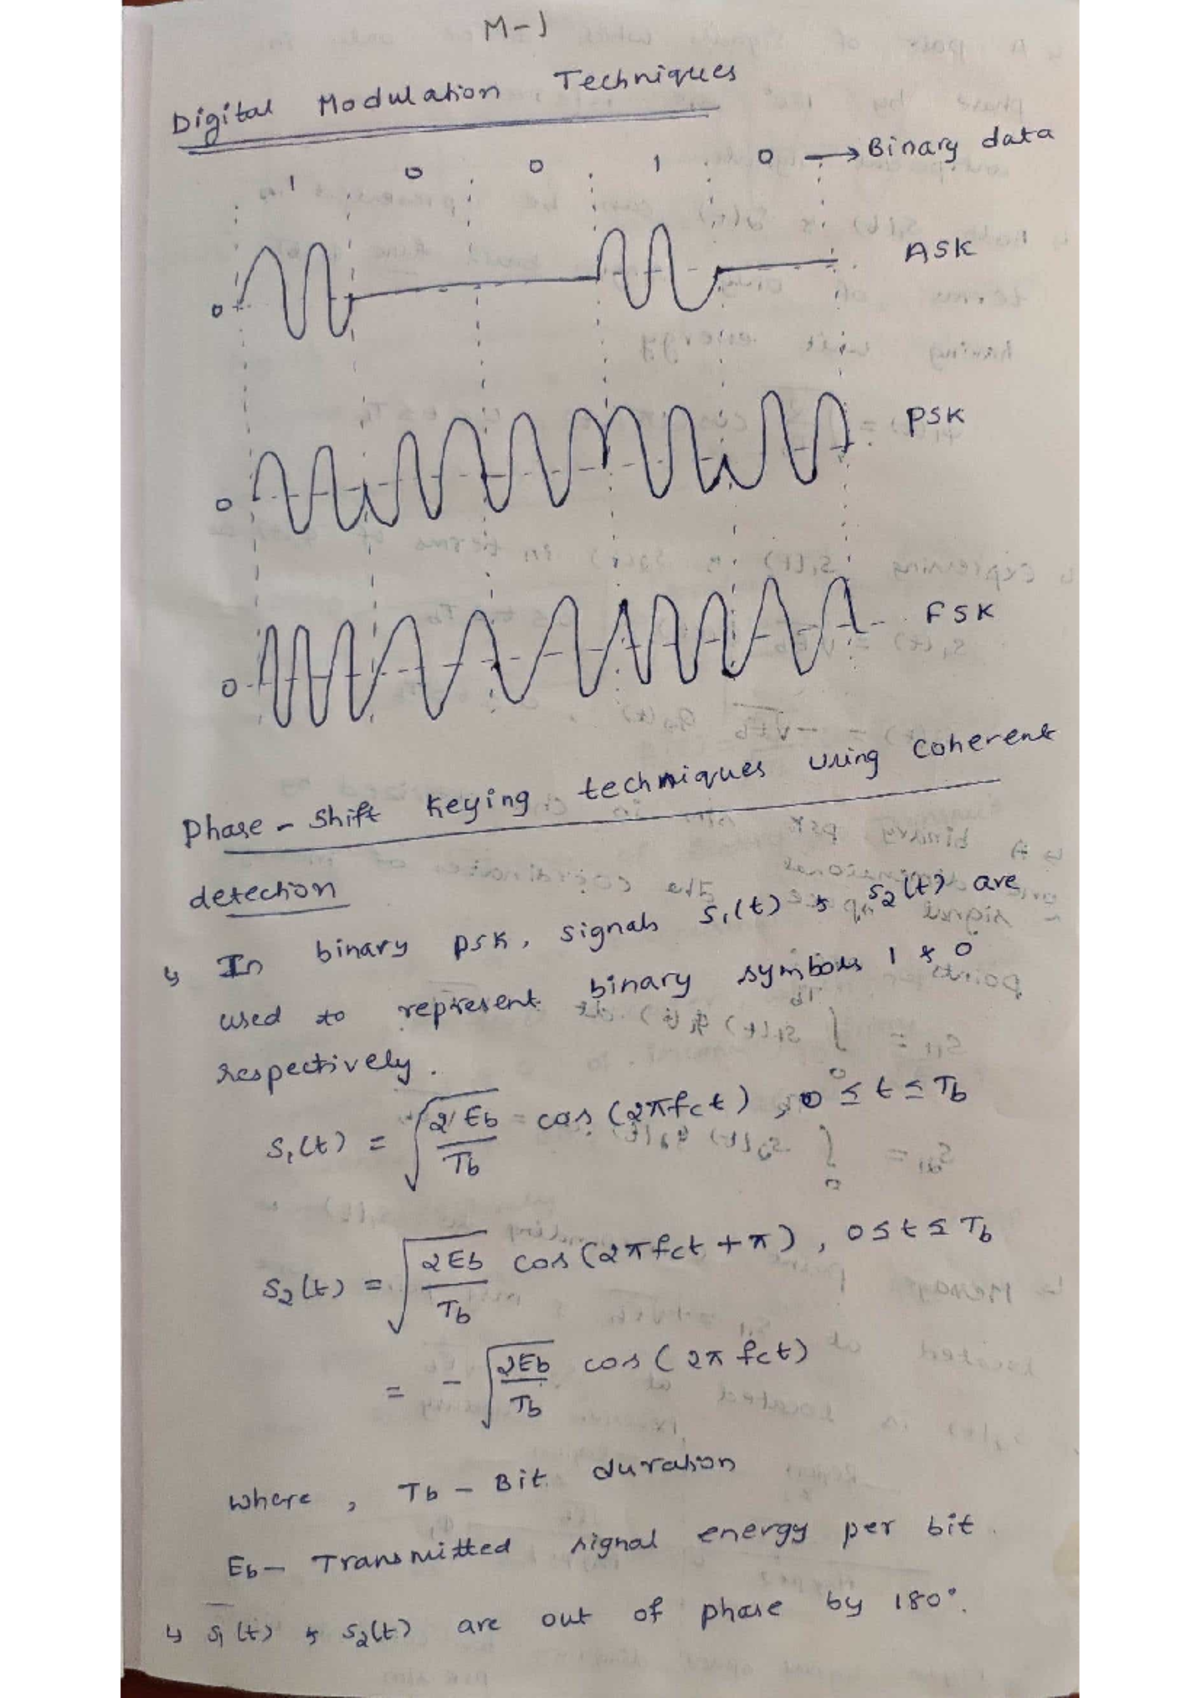 M-1
Digital Modulation Techniques
1 0 0 1 0 → Binary data
0 ASK
0 PSK
0 FSK
Phase-Shift Keying techniques using Coherent
detection
↳ In binary PSK, signals S₁(t) & S₂(t) are
used to represent binary symbols 1 & 0
respectively.
S₁(t) = √(2Eb/Tb) cos(2πfct), 0 ≤ t ≤ Tb
S₂(t) = √(2Eb/Tb) cos(2πfct + π), 0 ≤ t ≤ Tb
= -√(2Eb/Tb) cos(2πfct)
where, Tb - Bit duration
Eb - Transmitted signal energy per bit.
↳ S₁(t) & S₂(t) are out of phase by 180°.